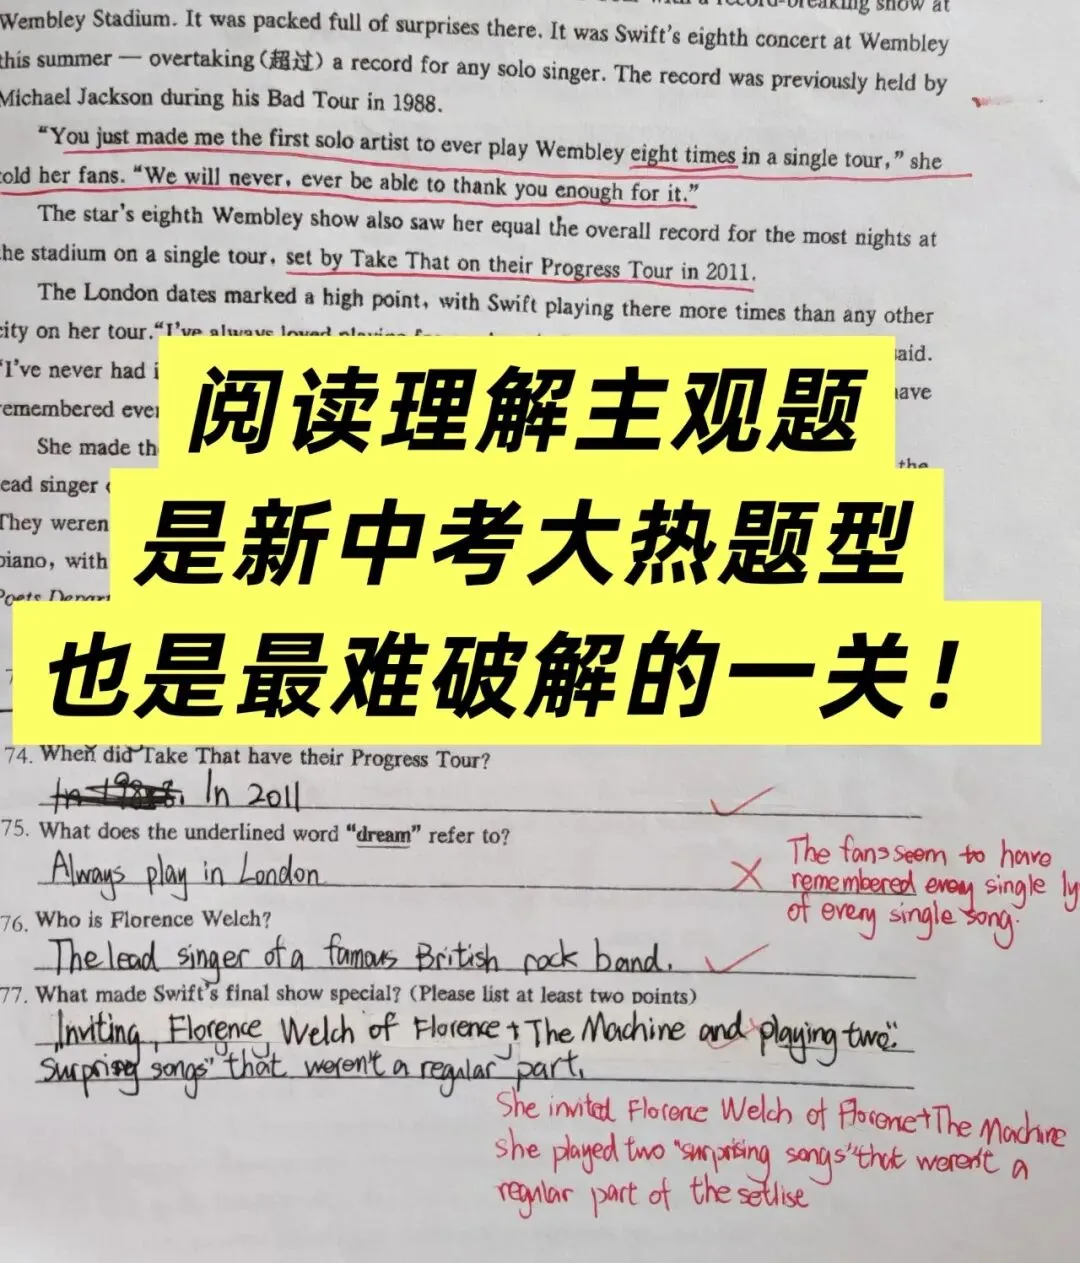 record-breaking show at
Wembley Stadium. It was packed full of surprises there. It was Swift's eighth concert at Wembley
this summer — overtaking(超过) a record for any solo singer. The record was previously held by
Michael Jackson during his Bad Tour in 1988.
“You just made me the first solo artist to ever play Wembley eight times in a single tour,” she
told her fans. “We will never, ever be able to thank you enough for it.”
The star's eighth Wembley show also saw her equal the overall record for the most nights at
the stadium on a single tour, set by Take That on their Progress Tour in 2011.
The London dates marked a high point, with Swift playing there more times than any other
city on her tour.“I've always loved playing
said.
“I've never had
have
remembered
She made
the
lead singer
They weren
piano, with
Poets
阅读理解主观题
是新中考大热题型
也是最难破解的一关！
74. When did Take That have their Progress Tour?
In 2011
75. What does the underlined word “dream” refer to?
Always play in London
The fans seem to have
remembered every single
of every single song.
76. Who is Florence Welch?
The lead singer of a famous British rock band.
77. What made Swift's final show special? (Please list at least two points)
Inviting Florence Welch of Florence + The Machine and playing two"
surprising songs" that weren't a regular part.
She invited Florenc Welch of Florence+The Machine
she played two "surprising songs" that weren't a
regular part of the setlise